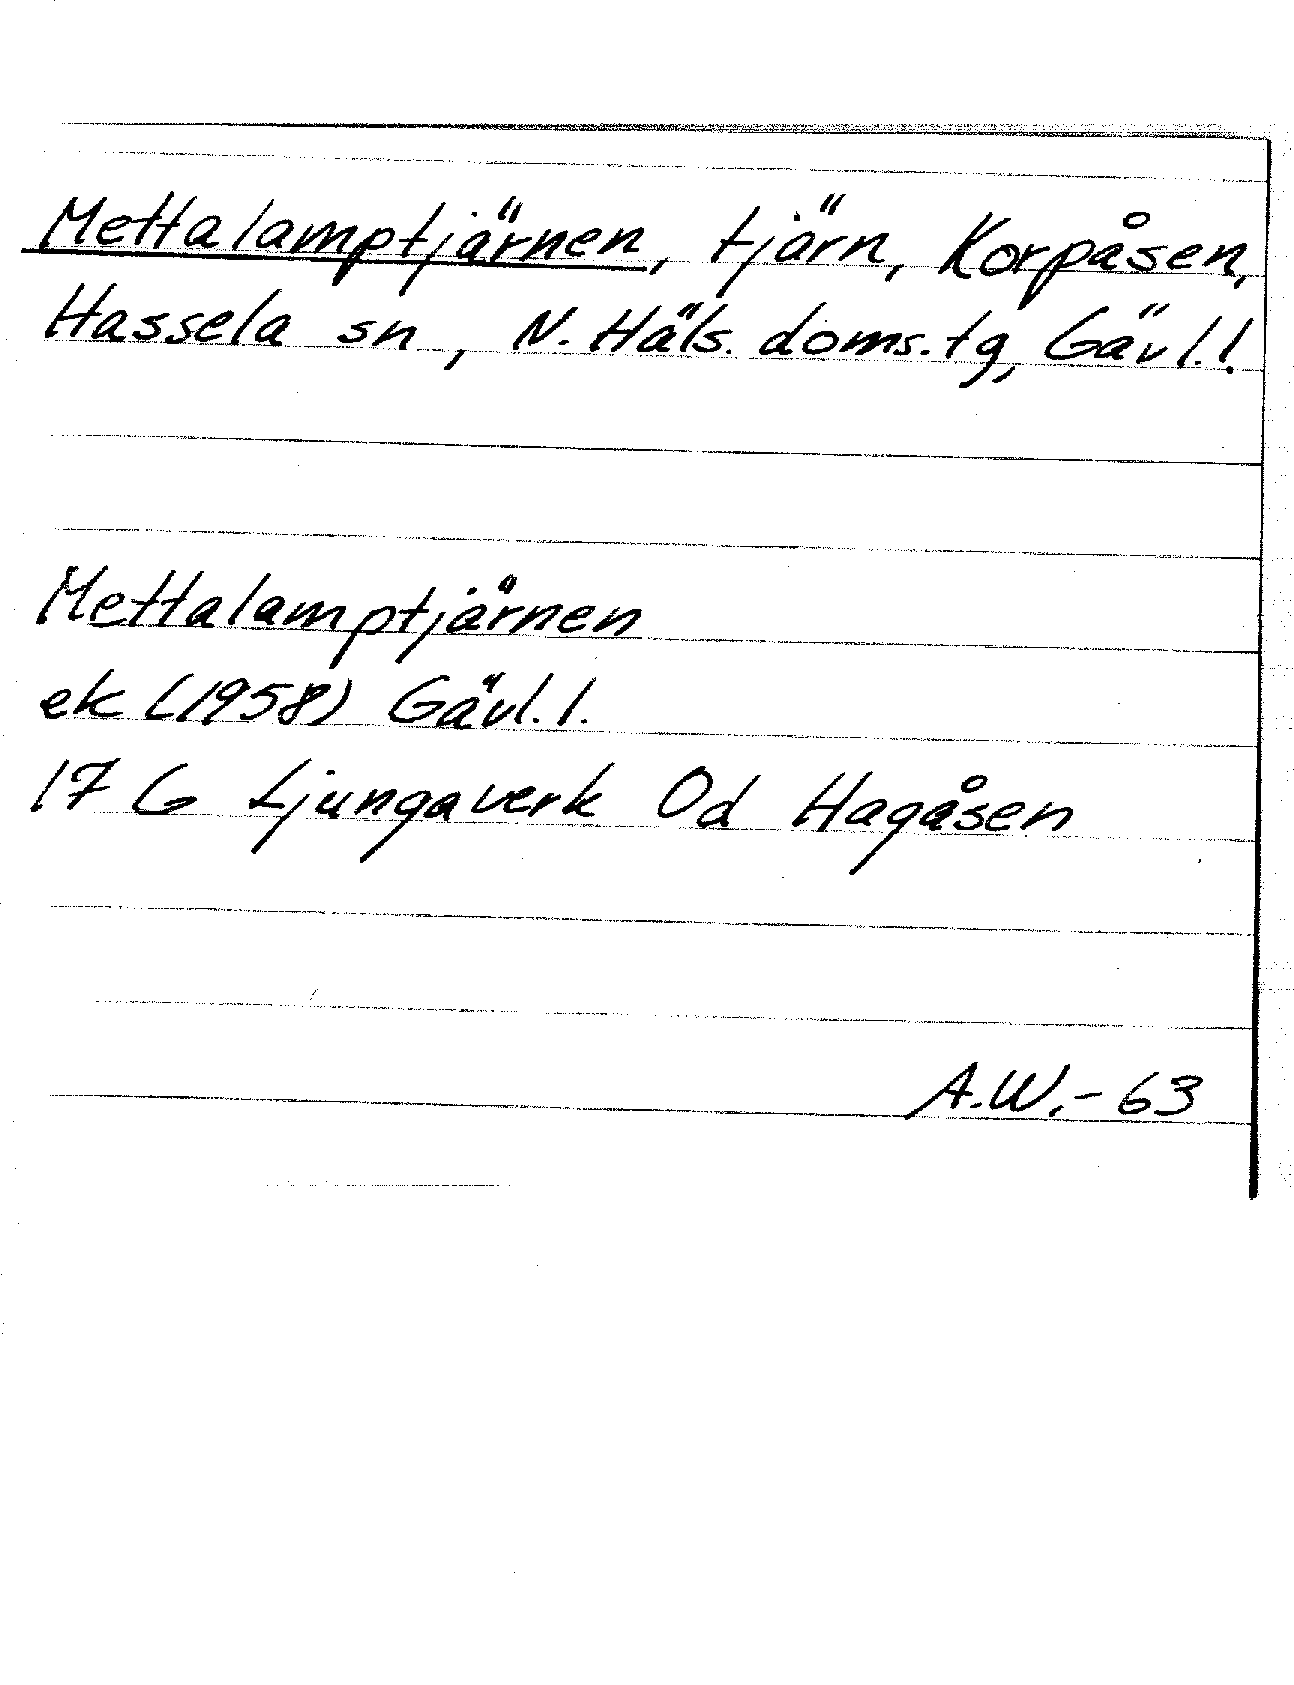 Mettalamptjärnen, tjärn, Korpåsen,
Hassela sn, N. Häls. doms.tg, Gävl.l.
Mettalamptjärnen
ek (1958) Gävl.l.
17 G Ljungaverk 0d Hagåsen
A.W.-63